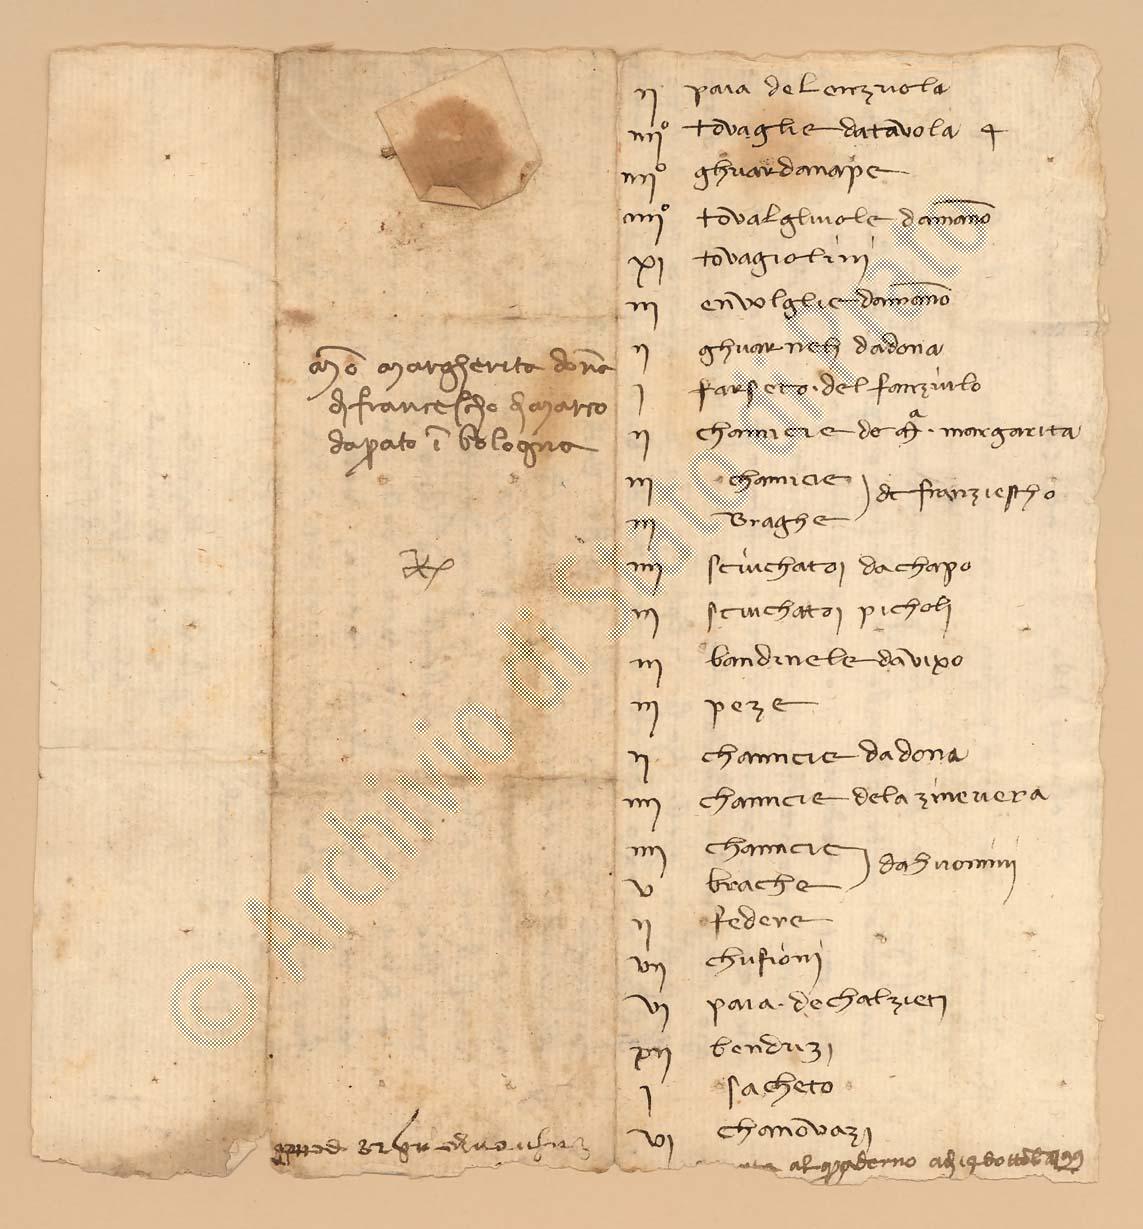 Mo Margherita dona
di francescho di marco
daprato i bologna
ij paia de lenzuola
iiijo tovaglie datavola 4
iiijo ghuardanape
iiijo tovalgliuole damano
xj tovagiolini
iij envolglie damano
ij ghuarneli dadona
j farseto del fanziulo
ij chamicie de Ma. margarita
iij chamicie
iij Braghe
de franziescho
iiij sciuchatoi dachapo
iij sciuchatoi picholi
iij bandinele davixo
iij peze
ij chamicie dadona
iiij chamicie dela zinevera
iiij chamicie
v brache
dahuomini
ij federe
vij chufioni
vj paia. de chalzieti
xij benduzi
j sacheto
vj chanovazi
al quaderno adi 14 dottobre
© Archivio di Stato di Prato